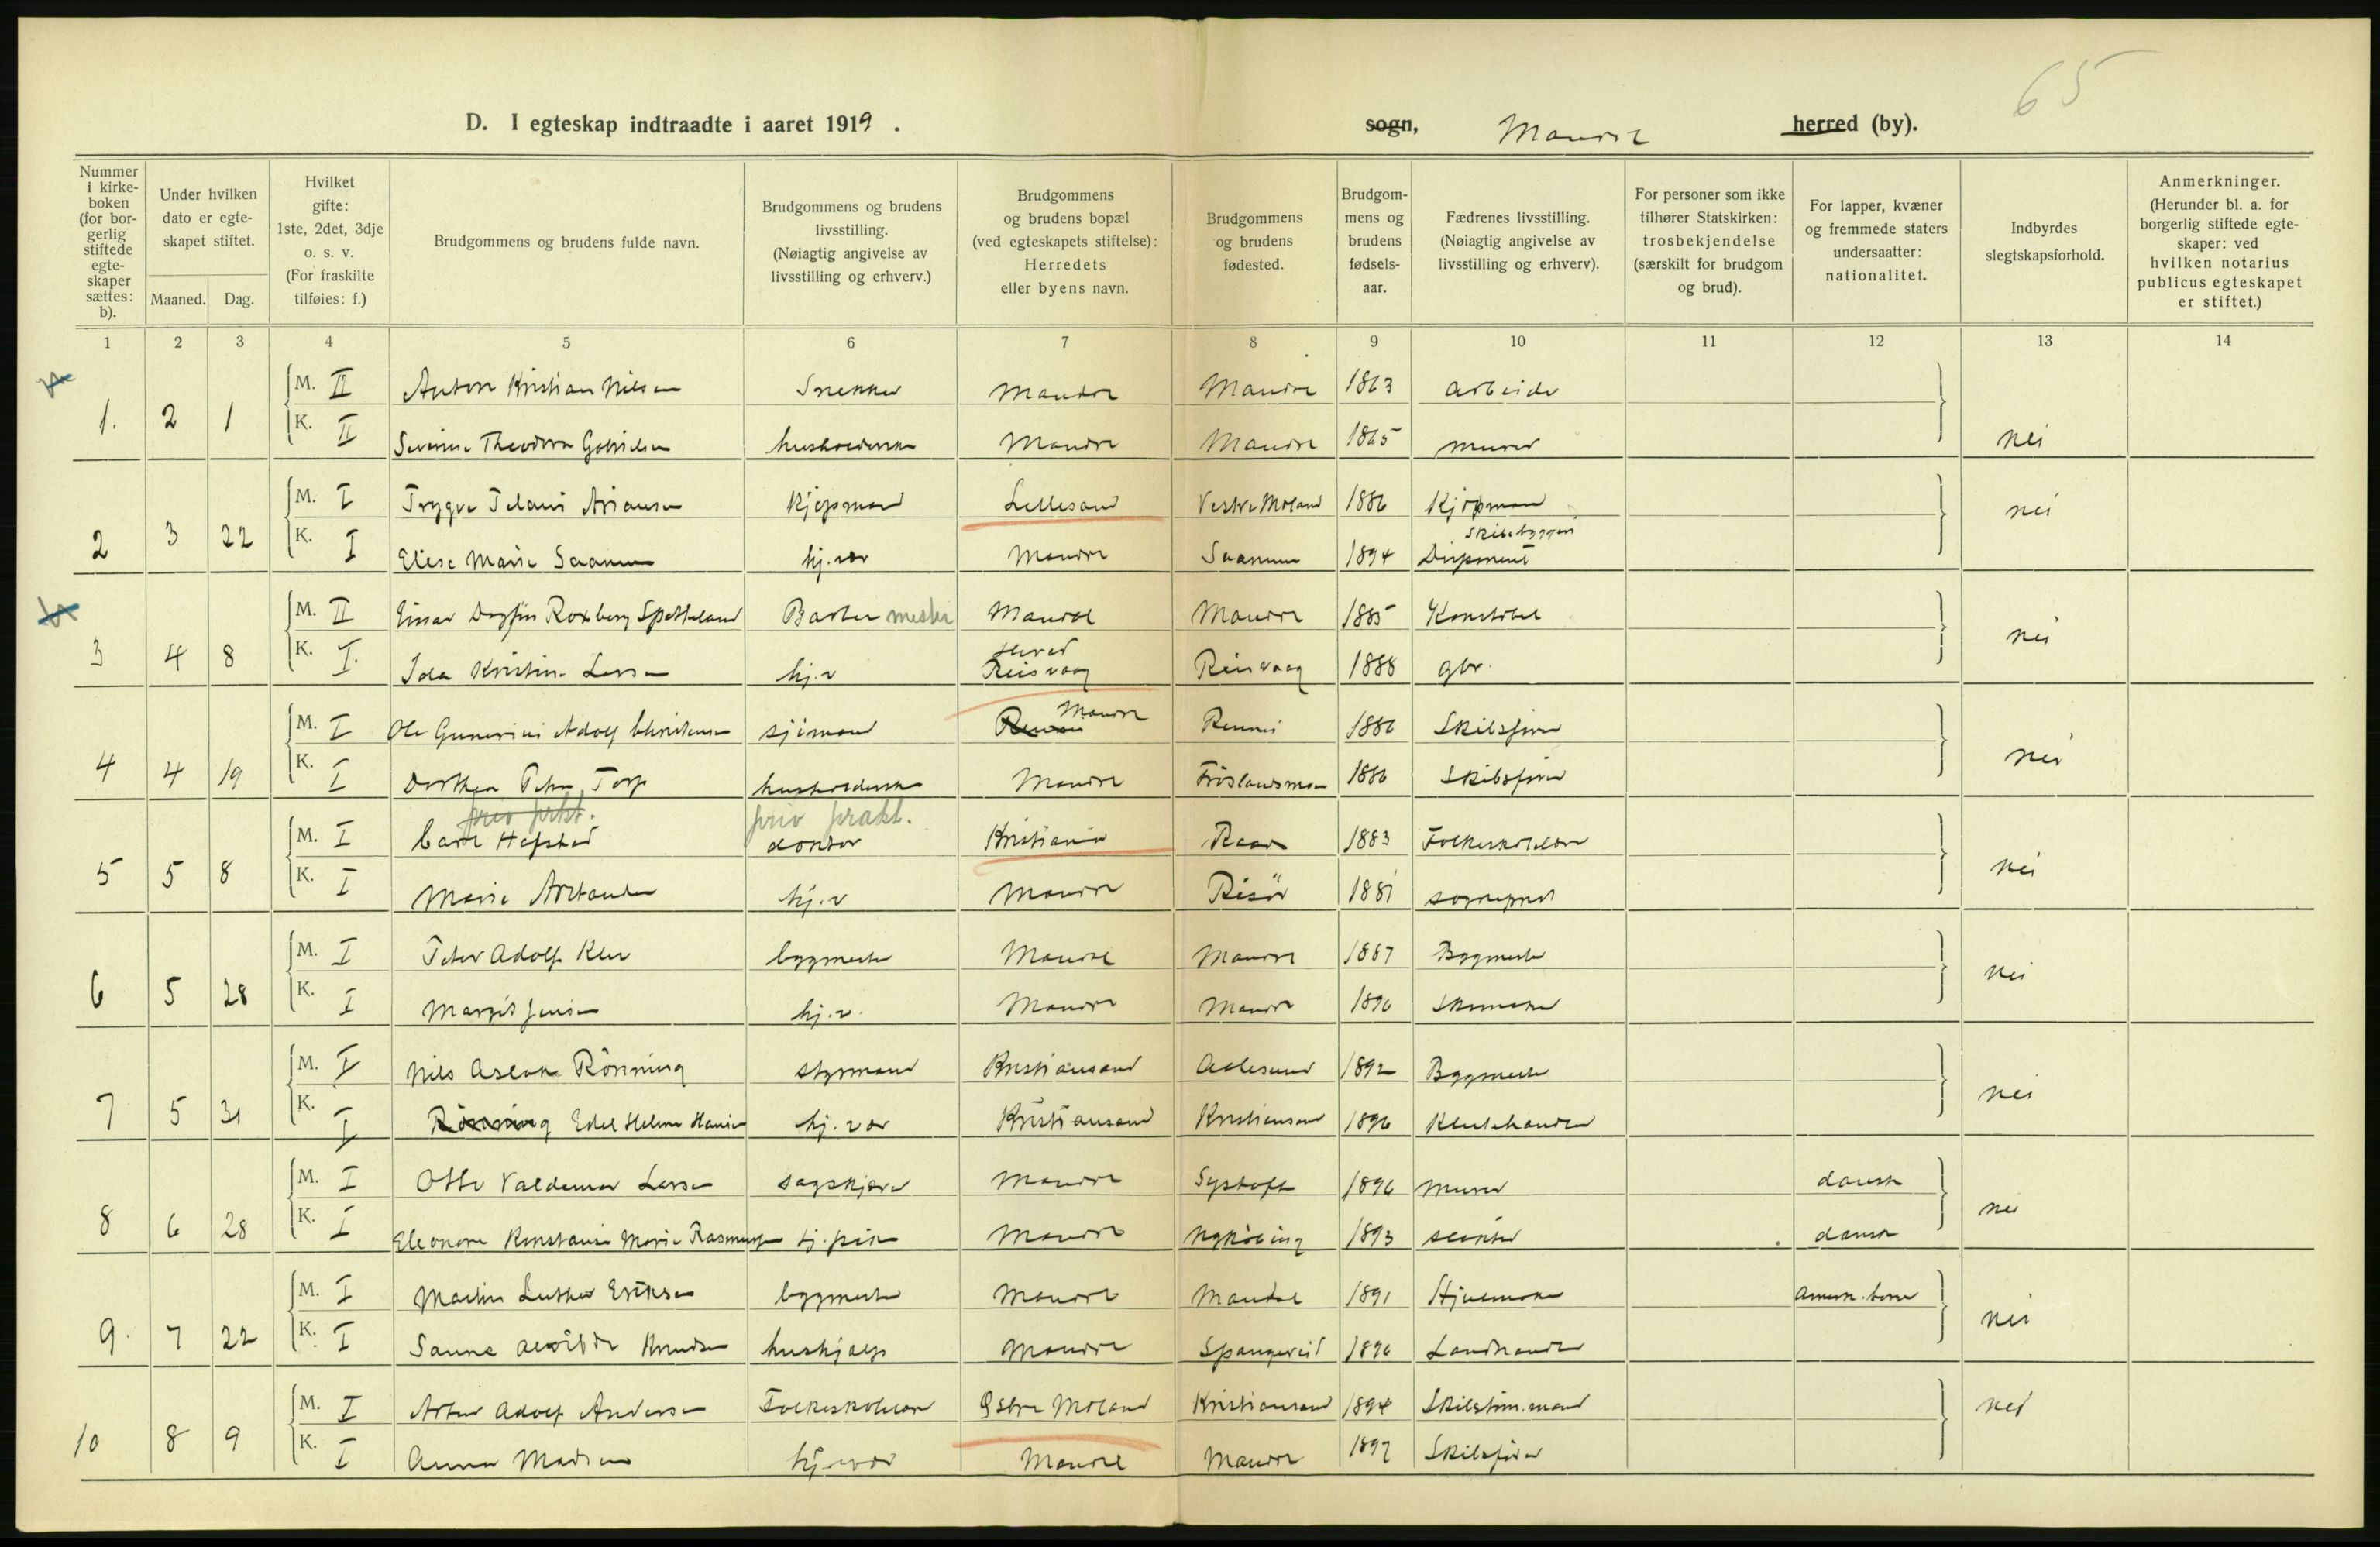 65
D. I egteskap indtraadte i aaret 1919. sogn, Mandal herred (by).
Nummer i kirkeboken (for borgerlig stiftede egteskaper sættes: b).
Under hvilken dato er egteskapet stiftet.
Maaned. Dag.
Hvilket gifte: 1ste, 2det, 3dje o. s. v. (For fraskilte tilføies: f.)
Brudgommens og brudens fulde navn.
Brudgommens og brudens livsstilling. (Nøiagtig angivelse av livsstilling og erhverv.)
Brudgommens og brudens bopæl (ved egteskapets stiftelse): Herredets eller byens navn.
Brudgommens og brudens fødested.
Brudgommens og brudens fødselsaar.
Fædrenes livsstilling. (Nøiagtig angivelse av livsstilling og erhverv).
For personer som ikke tilhører Statskirken: trosbekjendelse (særskilt for brudgom og brud).
For lapper, kvæner og fremmede staters undersaatter: nationalitet.
Indbyrdes slegtskapsforhold.
Anmerkninger. (Herunder bl. a. for borgerlig stiftede egteskaper: ved hvilken notarius publicus egteskapet er stiftet.)
1 2 3 4 5 6 7 8 9 10 11 12 13 14
M. II Anton Kristian Nilsen Snekker Mandal Mandal 1863 arbeider
1. 2 1 K. II Severine Theodora Gabrielsen husholderske Mandal Mandal 1865 murer nei
M. I Trygve Ariansen Kjøpmand Lillesand Vestre Moland 1886 Kjøpmand nei
Skibsbygger
2 3 22 K. I Elise Marie Saanum hj. vær Mandal Saanum 1894
M. II Einar Dagfin Roxberg Spetteland Barber mester Mandal Mandal 1885 Konstabel nei
Herad
3 4 8 K. I. Ida Kristine Larsen hj. v Reisvaag Reisvaag 1888 gbr.
Mandal
M. I Ole Gunerius Adolf Christensen sjömand 1886 Skibsfører nei
4 4 19 K. I Dorthea Petra Torp husholderske Mandal 1886 Skibsfører
priv prkt. priv prakt.
M. I Carl Hofstad doktor Kristiania 1883 Folkeskolelærer nei
5 5 8 K. I Marie hj. v Mandal Risör 1881 sogneprest
M. I Peter Adolf bygmester Mandal Mandal 1887 Bygmester nei
6 5 28 K. I Margit Jensen hj. v. Mandal Mandal 1896 Skomaker
M. I Nils Aslak Rönning styrmand Kristiansand Aalesund 1892 Bygmester nei
7 5 31 K. I Rönning Edel Helene Hansen hj. vær Kristiansand Kristiansand 1896
M. I Otto Valdemar Larsen sagskjærer Mandal Systofte 1896 murer dansk nei
8 6 28 K. I Eleonora Konstanse Marie Rasmussen tj. pike Mandal Nykøbing 1893 slakter dansk
M. I Martin Luther Eriksen bygmester Mandal Mandal 1891 Hjulmaker Amerik. borger nei
9. 7 22 K. I Sanna Alvilde Knudsen hushjælp Mandal Spangereid 1896 Landhandler
M. I Artur Adolf Andersen Folkeskolelærer Østre Moland Kristiansand 1894 Skibstøm.mand nei
10 8 9 K. I Anna Madsen hj. vær Mandal Mandal 1897 Skibsfører